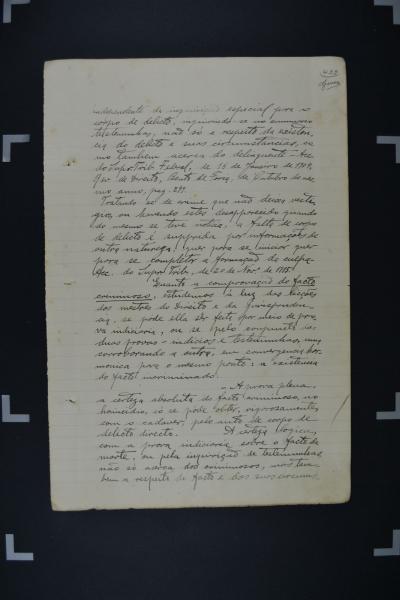 433
independente da inquirição especial para o
corpo de delicto, inquirindo-se no summario
testemunhas, não só a respeito da existen-
cia do delicto e suas circumstancias, co-
mo tambem acerca do delinquente – Acc.
do Sup. Trib. Federal, de 15 de Janeiro de 1908,
Rev. de Direito, Bento de Faria, de Outubro do mes-
mo anno, pag. 291.
Tratando-se de crime que não deixa vesti-
gios, ou havendo estes desapparecido quando
do mesmo se teve noticia, a falta de corpo
de delicto é supprida por informações de
outra natureza, quer para se iniciar quer
para se completar a formação da culpa –
Acc. do Supr. Trib., de 20 de Nov. de 1915.
Quanto a comprovação do facto
criminoso, estudemos, à luz das licções
dos mestres do Direito e da Jurispruden-
cia, se pode ella ser feita por meio de pro-
va indiciaria, ou se pelo conjuncto das
duas provas – indicios e testemunhas, uma
corroborando a outra, em convergencia har-
monica para o mesmo ponto: a existencia
do facto incriminado.
– A prova plena,
a certeza absoluta do facto criminoso, no
homicidio, só se pode obter, rigorosamente,
com o cadaver, pelo auto de corpo de
delicto directo. A certeza logica,
com a prova indiciaria sobre o facto da
morte, ou pela inquirição de testemunhas
não só acerca dos criminosos, mas tam-
bem a respeito do facto e das suas circums-